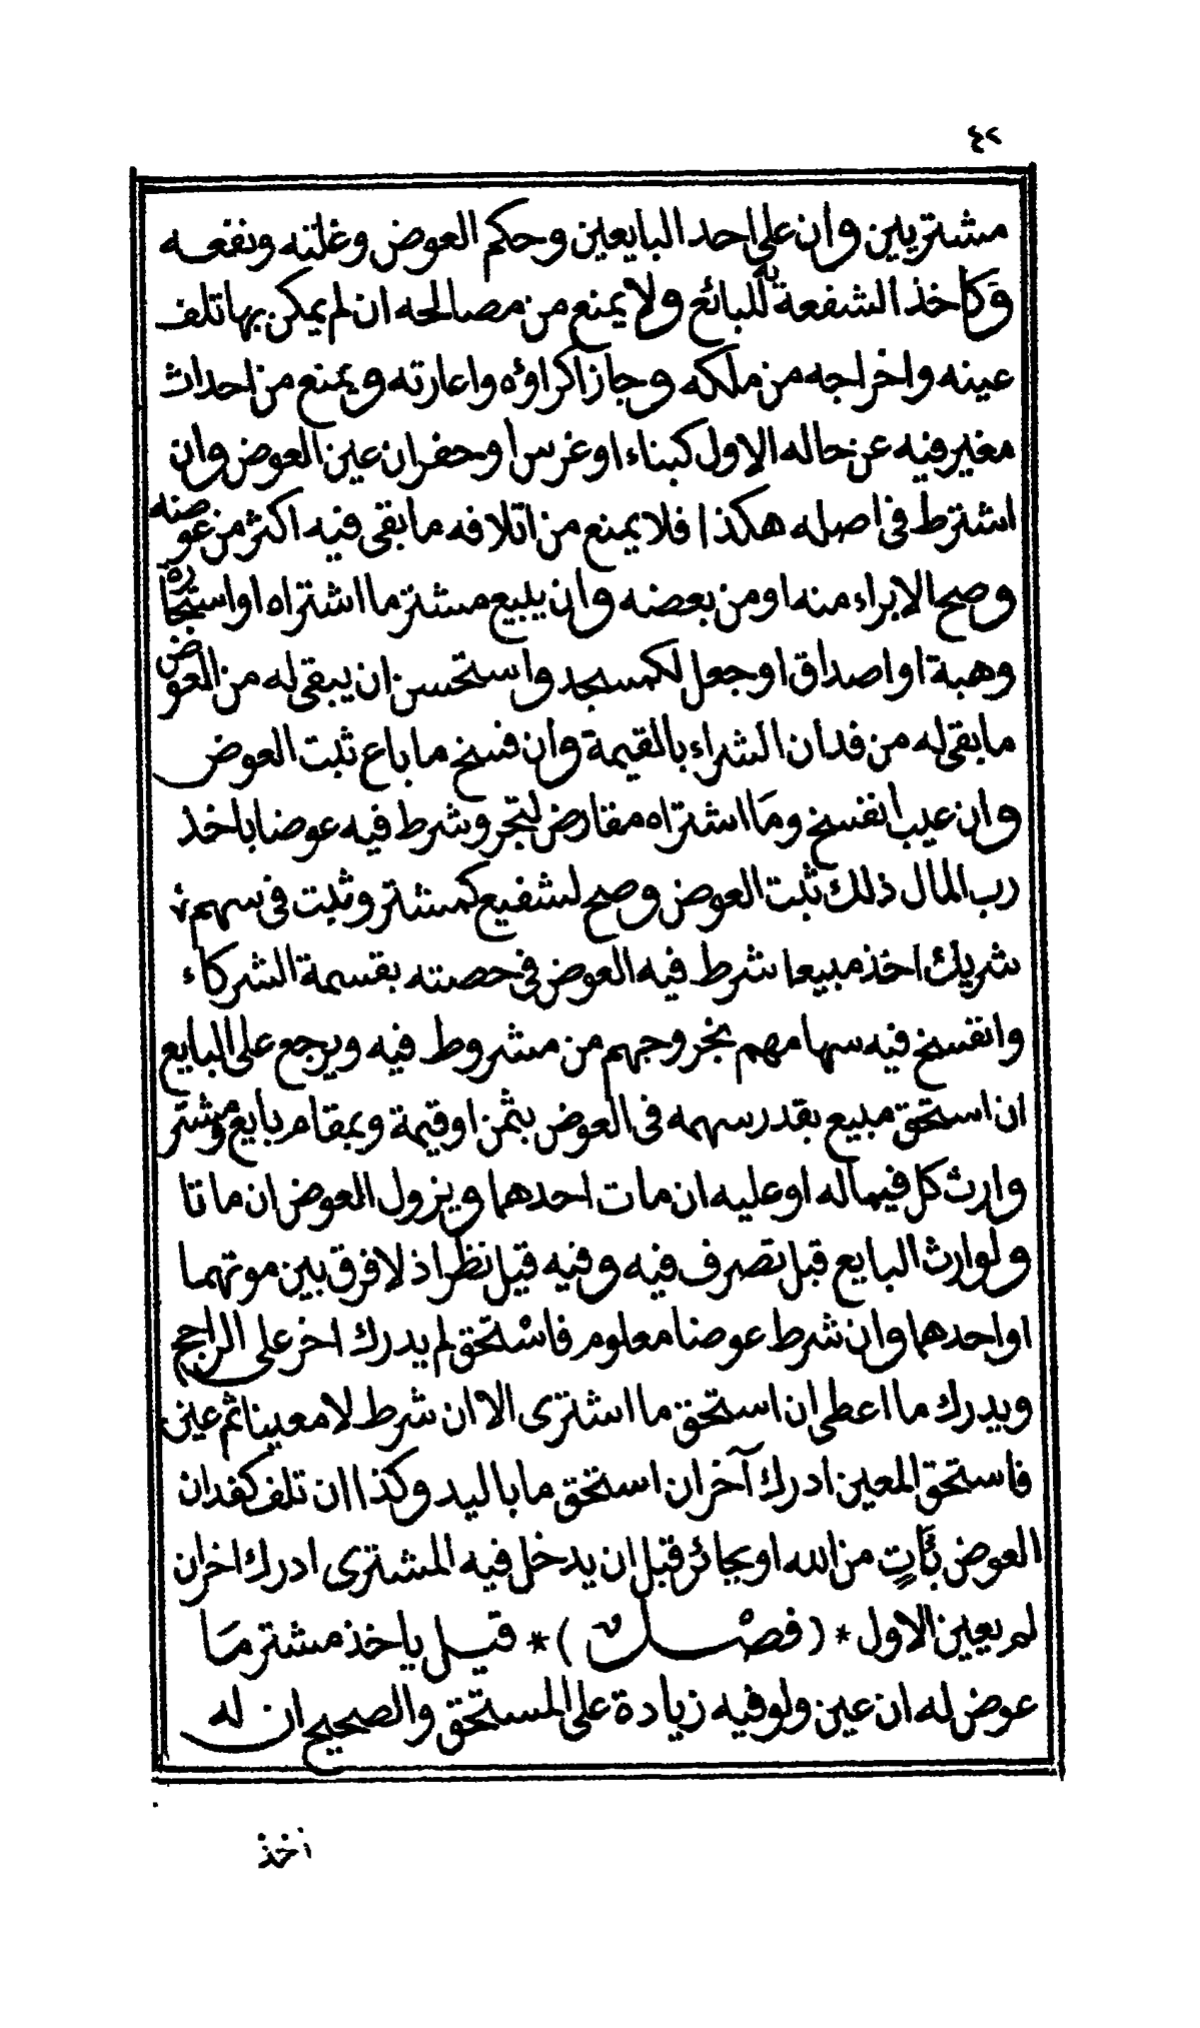 ٤٢
مشتريين وان على احد البايعين وحكم العوض وغلته ونفعه
وكأخذ الشفعة به للبائع ولا يمنع من مصالحه ان لم يمكن بها تلف
عينه واخراجه من ملكه وجاز اكراؤه واعارته ويمنع من احداث
مغير فيه عن حاله الاول كبناء او غرس او حفر ان عين العوض وان
اشترط فى اصله هكذا فلا يمنع من اتلافه ما بقى فيه اكثر من عوضه
وصح الابراء منه او من بعضه وان يبيع مشتر ما اشتراه او استجاره
وهبة او اصداق او جعل لكمسجد واستحسن ان يبقى له من العوض
ما بقى له من فدان الشراء بالقيمة وان فسخ ما باع ثبت العوض
وان عيب انفسخ وما اشتراه مقارض لتجر وشرط فيه عوضا باخذ
رب المال ذلك ثبت العوض وصح لشفيع كمشتر وثبت فى سهم
شريك اخذ مبيعا شرط فيه العوض فى حصته بقسمة الشركاء
وانفسخ فيه سهامهم بخروجهم من مشروط فيه ويرجع على البايع
ان استحق مبيع بقدر سهمه فى العوض بثمن او قيمة وبمقام بايع ومشتر
وارث كل فيما له او عليه ان مات احدهما ويزول العوض ان ماتا
ولوارث البايع قبل تصرف فيه وفيه قيل نظر اذ لا فرق بين موتهما
او احدهما وان شرط عوضا معلوم فاستحق لم يدرك اخر على الراجح
ويدرك ما اعطى ان استحق ما اشترى الا ان شرط لا معينا ثم عين
فاستحق المعين ادرك آخر ان استحق ما باليد وكذا ان تلف كفدان
العوض بئات من الله او بجائر قبل ان يدخل فيه المشترى ادرك اخر ان
لم يعين الاول * (فصل) * قيل ياخذ مشتر ما
عوض له ان عين ولو فيه زيادة على المستحق والصحيح ان له
اخذ